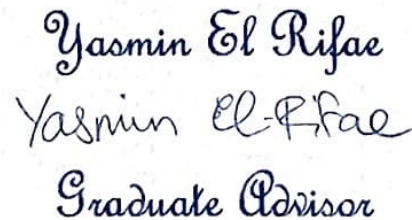 Yasmin El Rifae
Yasmin El-Rifae
Graduate Advisor